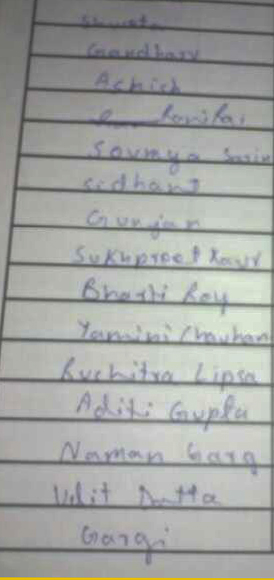 Shweta
Gandharv
Ashish
Sowmya Sarin
Sidhant
Gunjan
Sukhpreet Kaur
Bharti Roy
Yamini Chauhan
Ruchitra Lipsa
Aditi Gupta
Naman Garg
Udit Dutta
Gargi